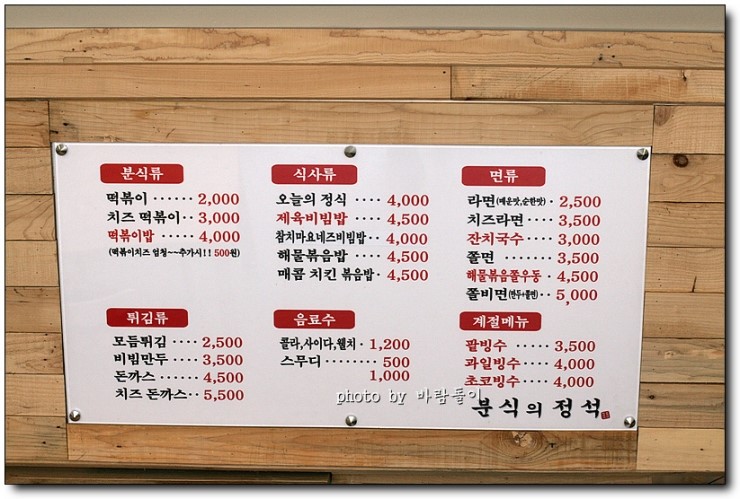 분식류
떡볶이 ······ 2,000
치즈 떡볶이·· 3,000
떡볶이밥 ····· 4,000
(떡볶이치즈 엄청~~추가시!! 500원)
식사류
오늘의 정식 ···· 4,000
제육비빔밥 ···· 4,500
참치마요네즈비빔밥·· 4,000
해물볶음밥 ···· 4,500
매콤 치킨 볶음밥· 4,500
면류
라면(매운맛,순한맛) · 2,500
치즈라면 ···· 3,500
잔치국수 ···· 3,000
쫄면 ······· 3,500
해물볶음쫄우동 · 4,500
쫄비면(만두+쫄면)·· 5,000
튀김류
모듬튀김 ···· 2,500
비빔만두 ···· 3,500
돈까스 ····· 4,500
치즈 돈까스·· 5,500
음료수
콜라,사이다,웰치 · 1,200
스무디 ····· 500
1,000
계절메뉴
팥빙수 ····· 3,500
과일빙수 ···· 4,000
초코빙수 ···· 4,000
photo by 바람돌이
분식의 정석